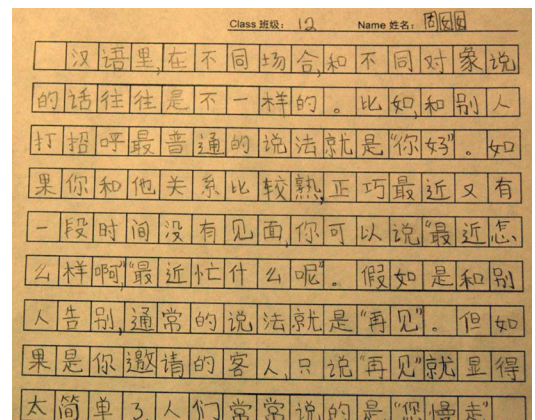 Class 班级: 12 Name 姓名: 周
汉语里,在不同场合,和不同对象说
的话往往是不一样的。比如,和别人
打招呼最普通的说法就是“你好”。如
果你和他关系比较熟,正巧最近又有
一段时间没有见面,你可以说“最近怎
么样啊”,“最近忙什么呢”。假如是和别
人告别,通常的说法就是“再见”。但如
果是你邀请的客人,只说“再见”就显得
太简单了,人们常常说的是“您慢走”